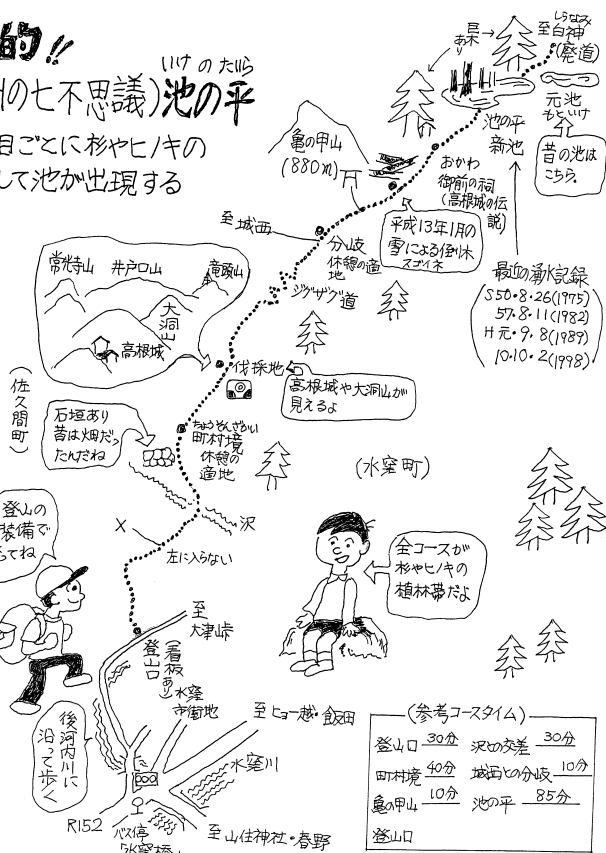 的!!
の七不思議)池の平
いけ の たいら
目ごとに杉やヒノキの
して池が出現する
巨木
あり
至白神
しらなみ
(廃道)
元池
もといけ
昔の池は
こちら。
池の平
新池
おかわ
御前の祠
(高根城の伝
説)
亀の甲山
(880m)
平成13年1月の
雪による倒木
スゴイネ
至城西
分岐
休憩の適
地
ジグザグ道
最近の湧水記録
S50・8・26(1975)
57・8・11(1982)
H元・9・8(1989)
10・10・2(1998)
常光寺山
井戸口山
竜頭山
大洞山
高根城
伐採地
高根城や大洞山が
見えるよ
(佐久間町)
石垣あり
昔は畑だっ
たんだね
ちょうそんざかい
町村境
休憩の
適地
(水窪町)
沢
X
左に入らない
登山の
装備で
ってね
全コースが
杉やヒノキの
植林帯だよ
至
大津峠
登山口
(看板あり)
水窪
市街地
至ヒョー越・飯田
水窪川
後河内川に
沿って歩く
R152
バス停
水窪橋
至山住神社・春野
(参考コースタイム)
登山口 30分 沢との交差 30分
町村境 40分 城西との分岐 10分
亀の甲山 10分 池の平 85分
登山口